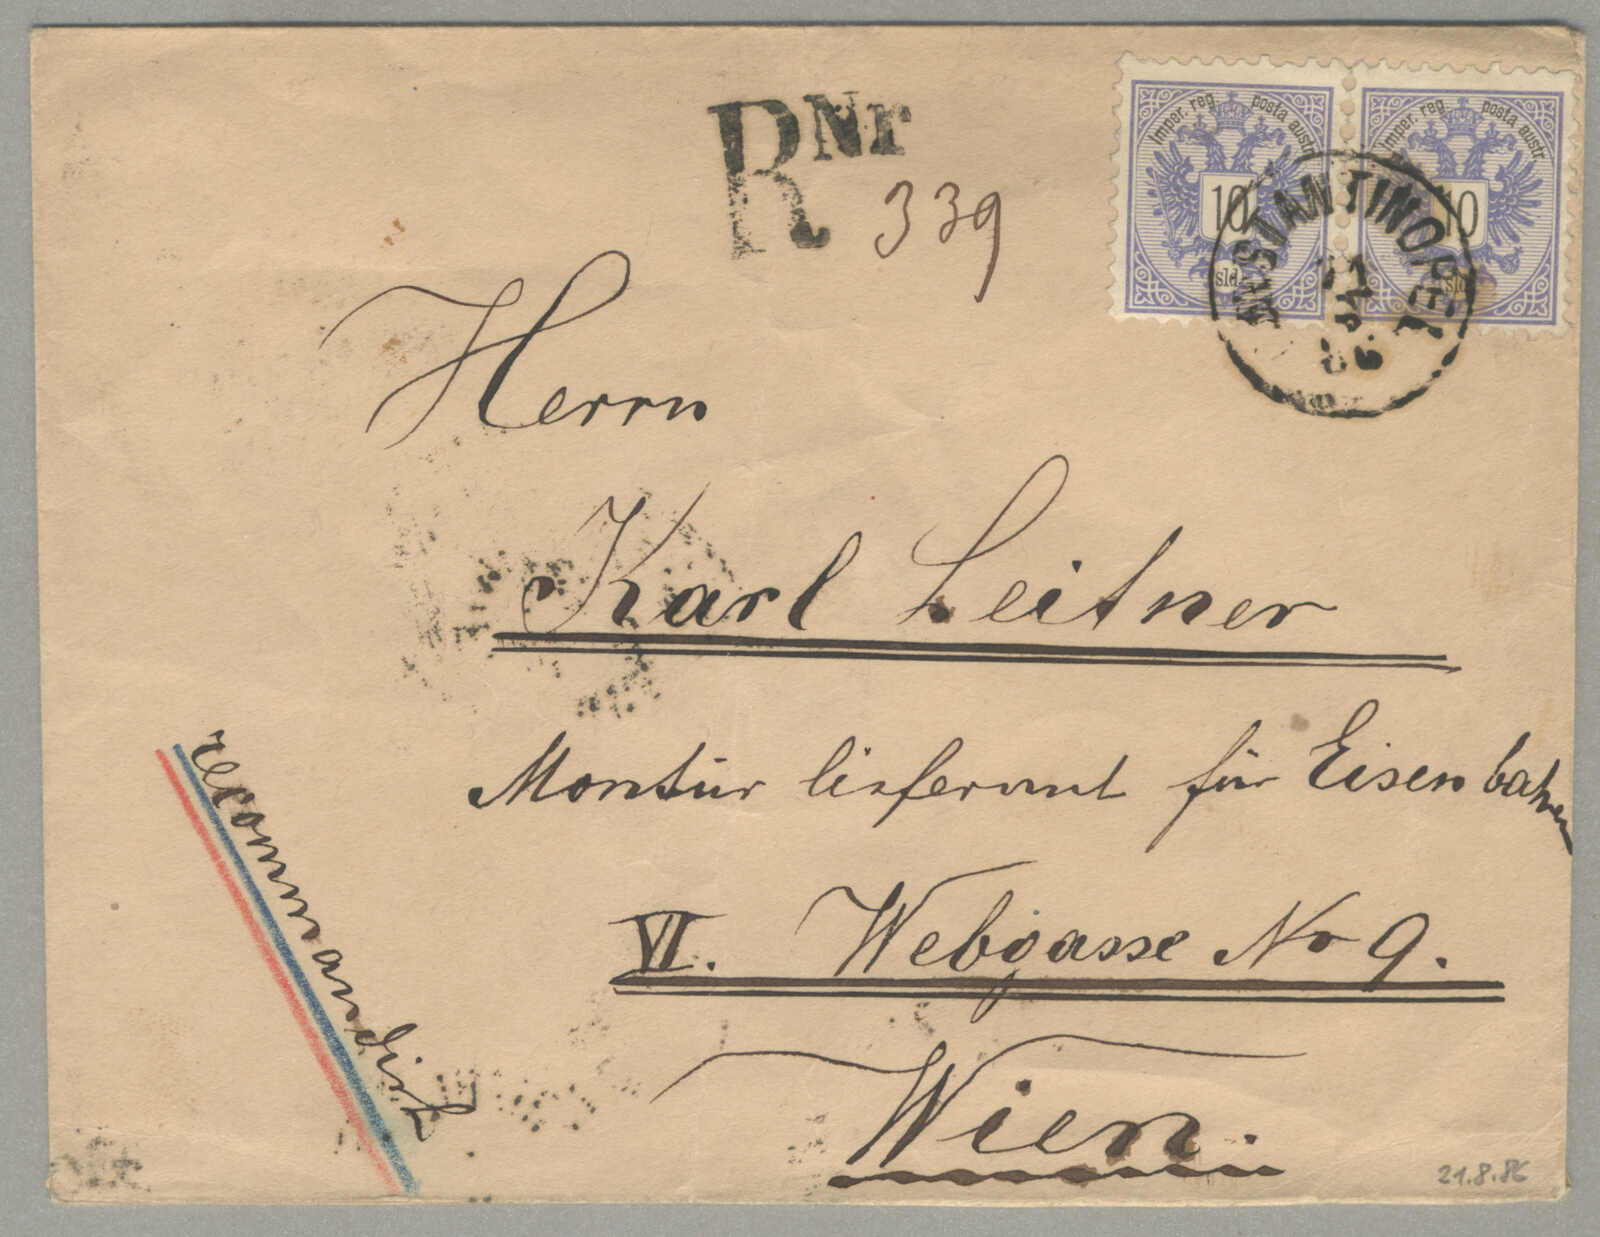 R Nr
339
Imper. reg. posta austr.
10
sld
Imper. reg. posta austr.
10
sld
86
Herrn
Karl Leitner
Montur lieferant für Eisenbahnen
VI. Webgasse No 9.
Wien.
recommandirt
21.8.86